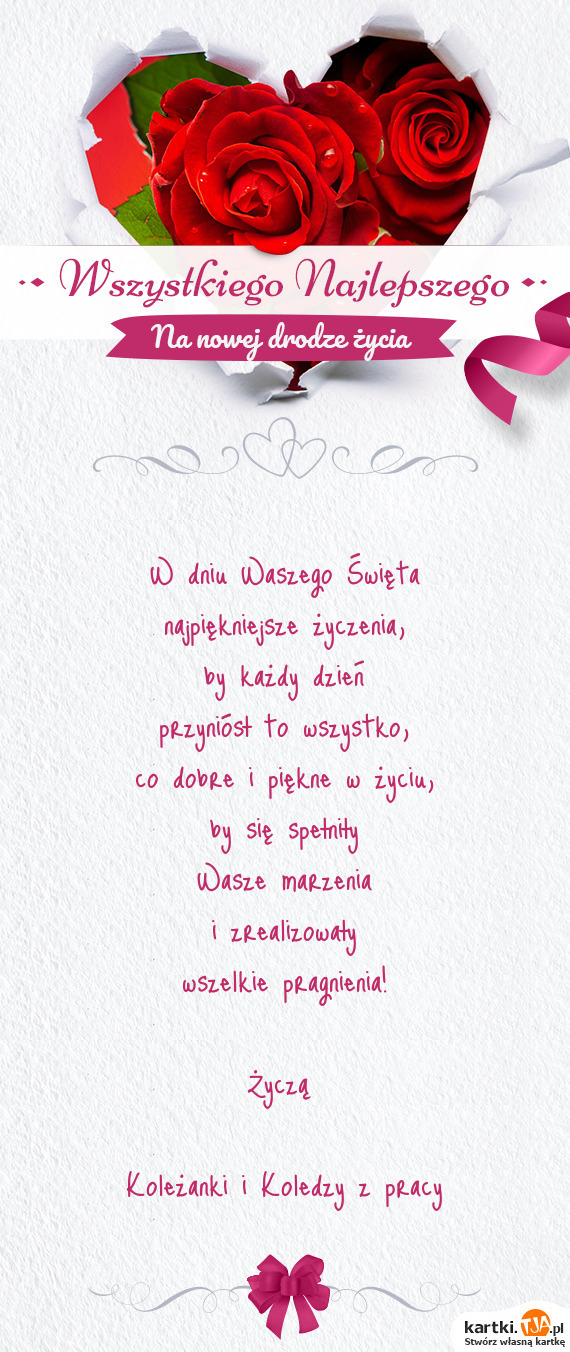 Wszystkiego Najlepszego
Na nowej drodze życia
W dniu Waszego Święta
najpiękniejsze życzenia,
by każdy dzień
przyniósł to wszystko,
co dobre i piękne w życiu,
by się spełniły
Wasze marzenia
i zrealizowały
wszelkie pragnienia!
Życzą
Koleżanki i Koledzy z pracy
kartki.TJA.pl
Stwórz własną kartkę